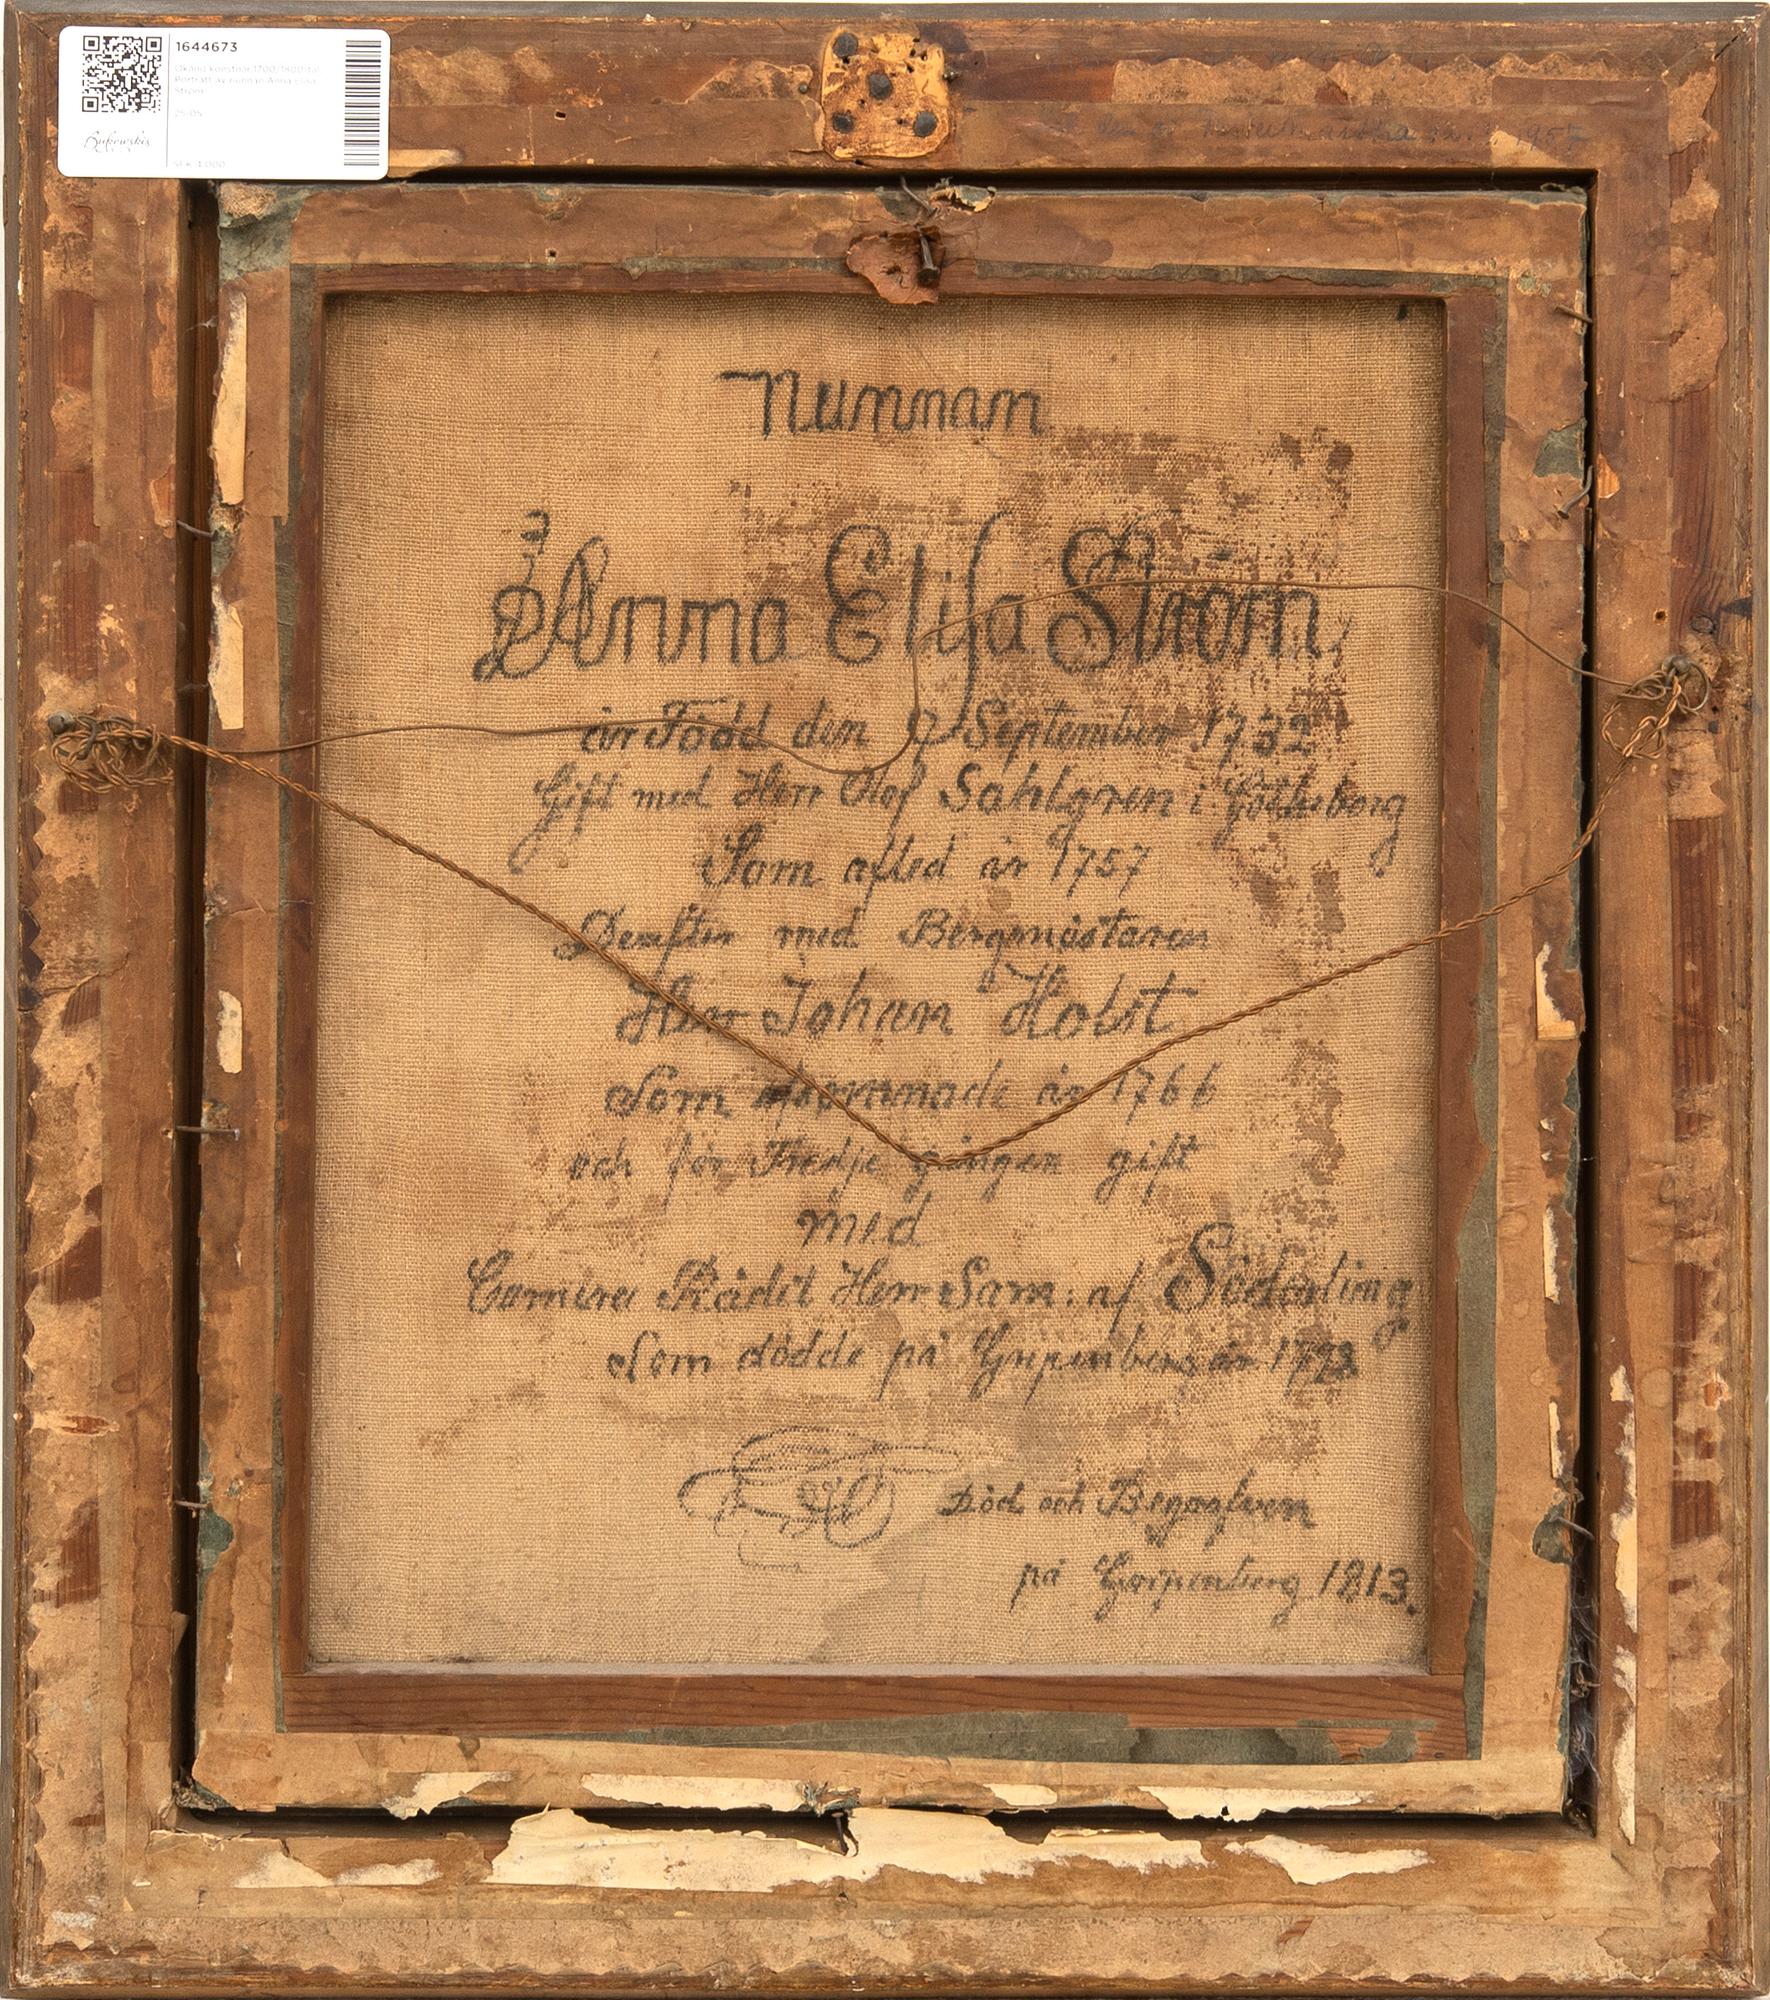 1644673
Okänd konstnär 1700/1800-tal
Porträtt av nunnan Anna Elisa
Ström
25-05
Bukowskis
SEK 4 000
1957
Nunnan
Anna Elisa Ström
är Född den 9 September 1732
Gift med Herr Olof Sahlgren i Götheborg
Som afled år 1757
Derefter med Bergmästaren
Herr Johan Holst
Som afsomnade år 1766
och för Tredje gången gift
med
Camerer Rådet Herr Sam: af Söderling
Som dödde på Gripenberg år
Död och Begrafven
på Gripenberg 1813.